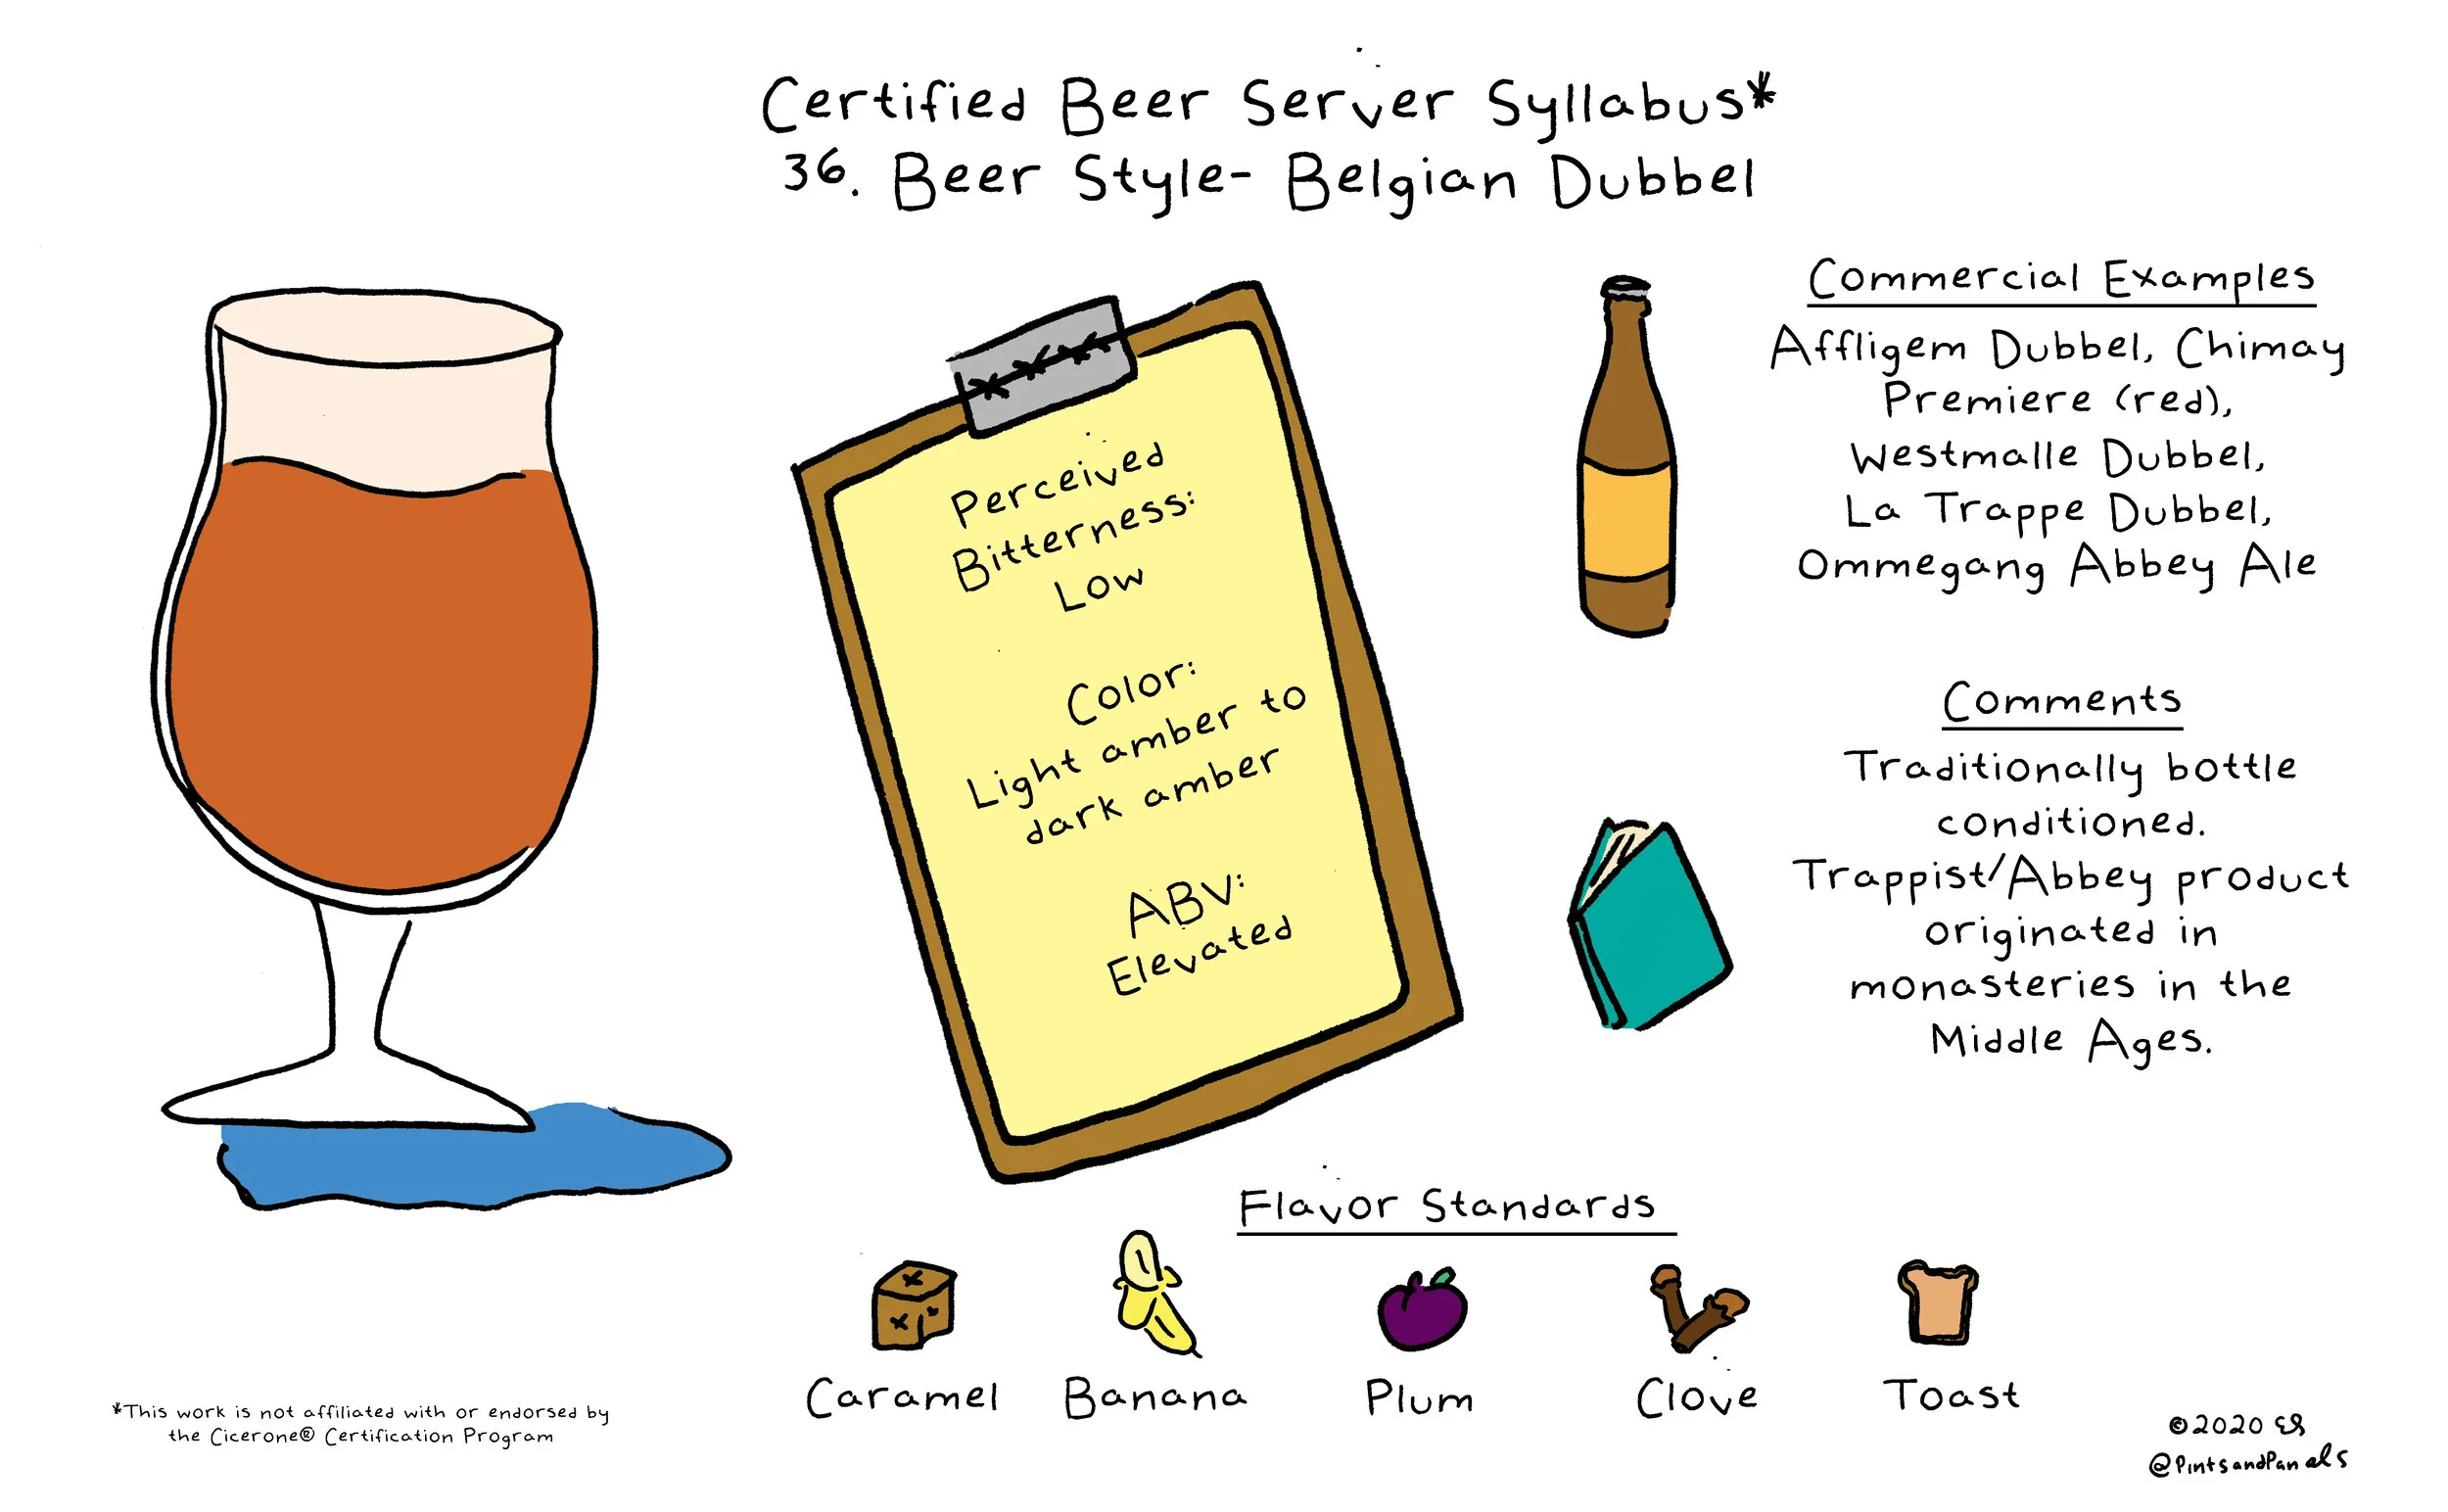 Certified Beer Server Syllabus*
36. Beer Style- Belgian Dubbel
Perceived
Bitterness:
Low
Color:
Light amber to
dark amber
ABV:
Elevated
Commercial Examples
Affligem Dubbel, Chimay
Premiere (red),
Westmalle Dubbel,
La Trappe Dubbel,
Ommegang Abbey Ale
Comments
Traditionally bottle
conditioned.
Trappist/Abbey product
originated in
monasteries in the
Middle Ages.
Flavor Standards
Caramel
Banana
Plum
Clove
Toast
*This work is not affiliated with or endorsed by
the Cicerone® Certification Program
©2020 ES
@PintsandPanels